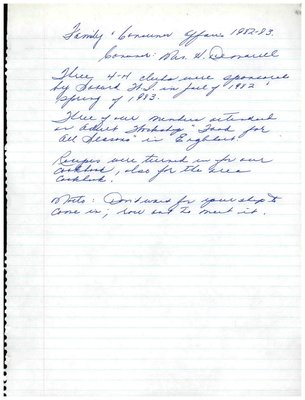 Family & Consumer Affairs 1982-83.
Convener: Mrs. H.
Three 4-H clubs were sponsored
by Inward W.I. in fall of 1982,
Spring of 1983.
Three of our members attended
an Adult Workshop "Food for
All Seasons" in
Recipes were turned in for our
cookbook, also for the area
cookbook.
Motto: Don't wait for your ship to
come in; row out to meet it.